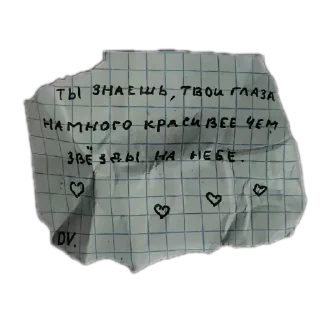 ТЫ ЗНАЕШЬ, ТВОИ ГЛАЗА
НАМНОГО КРАСИВЕЕ ЧЕМ
ЗВЁЗДЫ НА НЕБЕ.
DV.